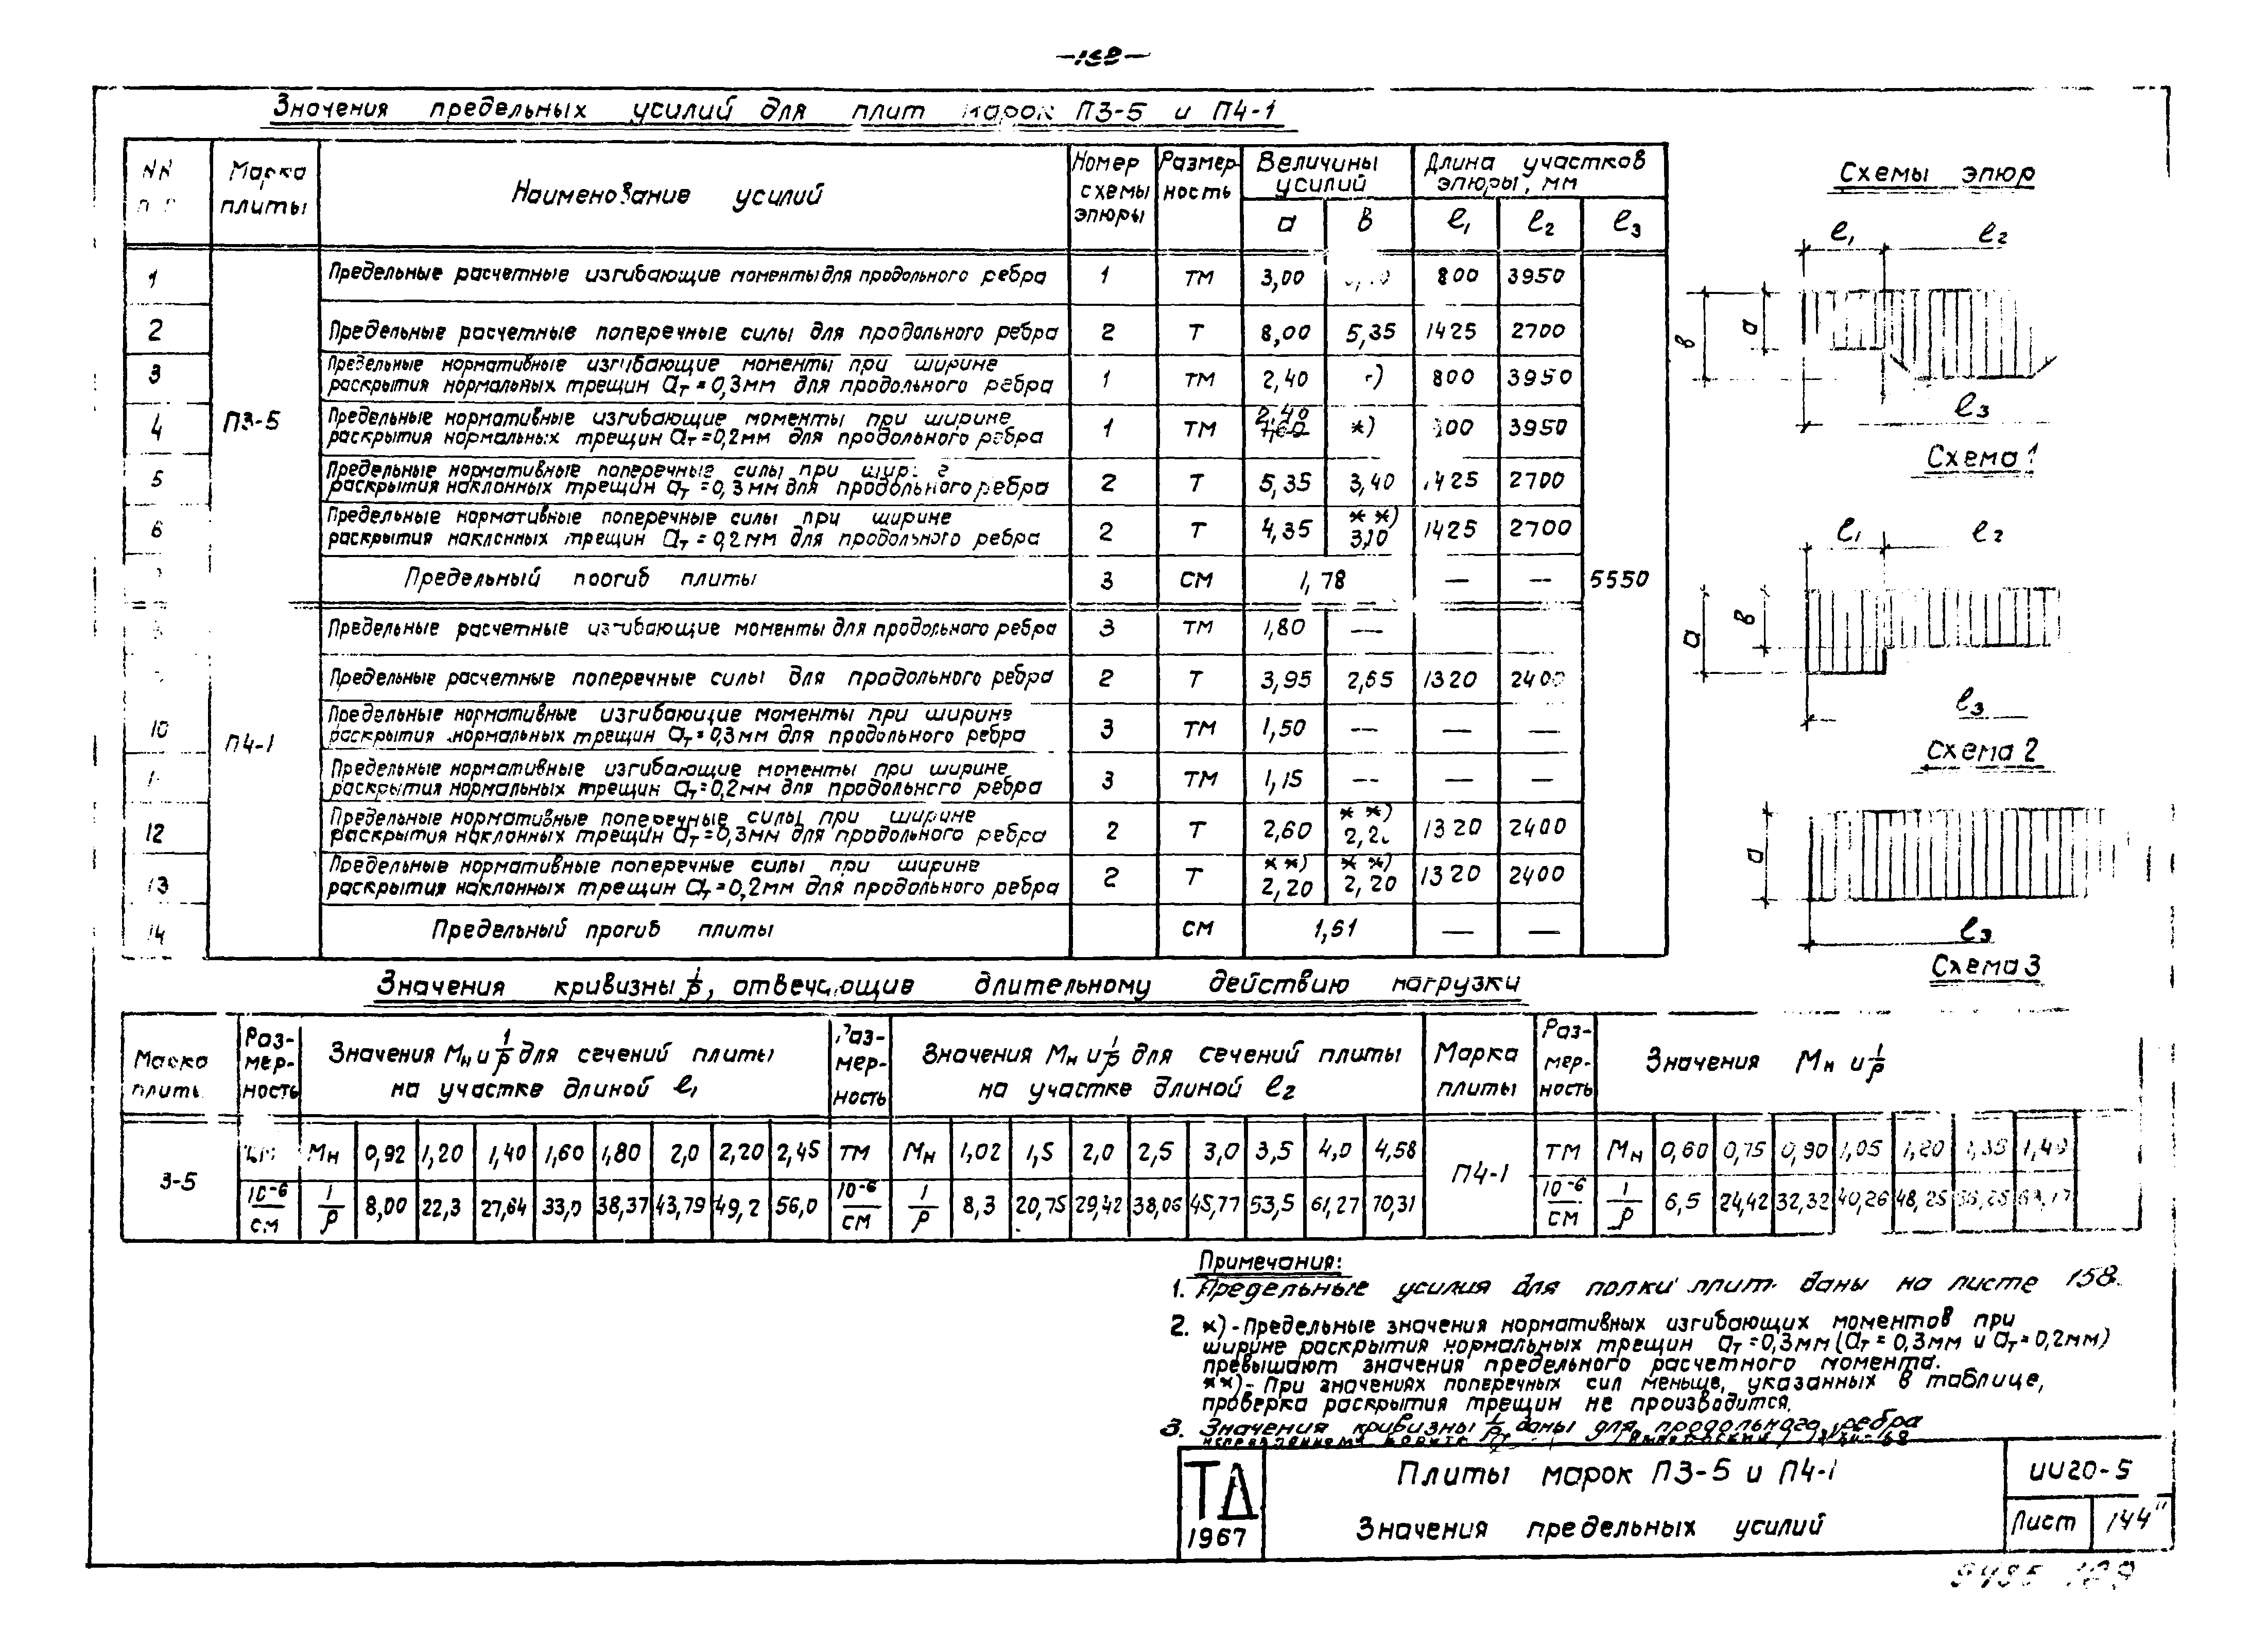 Значения предельных усилий для плит марок П3-5 и П4-1
NN Марка плиты Наименование усилий Номер схемы эпюры Размерность Величины усилий Длина участков эпюры, мм
а в ℓ1 ℓ2 ℓ3
1 Предельные расчетные изгибающие моменты для продольного ребра 1 ТМ 3,00 800 3950
2 Предельные расчетные поперечные силы для продольного ребра 2 Т 8,00 5,35 1425 2700
3 Предельные нормативные изгибающие моменты при ширине
раскрытия нормальных трещин ат = 0,3мм для продольного ребра 1 ТМ 2,40 800 3950
П3-5
4 Предельные нормативные изгибающие моменты при ширине
раскрытия нормальных трещин ат = 0,2мм для продольного ребра 1 ТМ 2,40 *) 3950
5 Предельные нормативные поперечные силы при
раскрытия наклонных трещин ат = 0,3мм для продольного ребра 2 Т 5,35 3,40 1425 2700
6 Предельные нормативные поперечные силы при ширине
раскрытия наклонных трещин ат = 0,2мм для продольного ребра 2 Т 4,35 **) 3,10 1425 2700
Предельный прогиб плиты 3 СМ 1,78 — — 5550
Предельные расчетные изгибающие моменты для продольного ребра 3 ТМ 1,80 —
Предельные расчетные поперечные силы для продольного ребра 2 Т 3,95 2,65 1320 2400
10 Предельные нормативные изгибающие моменты при ширине
раскрытия нормальных трещин ат = 0,3мм для продольного ребра 3 ТМ 1,50 — — —
П4-1
Предельные нормативные изгибающие моменты при ширине
раскрытия нормальных трещин ат = 0,2мм для продольного ребра 3 ТМ 1,15 — — —
12 Предельные нормативные поперечные силы при ширине
раскрытия наклонных трещин ат = 0,3мм для продольного ребра 2 Т 2,60 **) 1320 2400
13 Предельные нормативные поперечные силы при ширине
раскрытия наклонных трещин ат = 0,2мм для продольного ребра 2 Т **) 2,20 **) 2,20 1320 2400
14 Предельный прогиб плиты СМ 1,61 — —
Схемы эпюр
ℓ1 ℓ2
в а
ℓ3
Схема 1
ℓ1 ℓ2
а в
ℓ3
Схема 2
а
ℓ3
Схема 3
Значения кривизны 1/ρ, отвечающие длительному действию нагрузки
Марка плиты Размерность Значения Мн и 1/ρ для сечений плиты на участке длиной ℓ1 Размерность Значения Мн и 1/ρ для сечений плиты на участке длиной ℓ2 Марка плиты Размерность Значения Мн и 1/ρ
Мн 0,92 1,20 1,40 1,60 1,80 2,0 2,20 2,45 ТМ Мн 1,02 1,5 2,0 2,5 3,0 3,5 4,0 4,58 П4-1 ТМ Мн 0,60 0,75 0,90 1,05 1,20 1,35 1,49
3-5 10-6/см 1/ρ 8,00 22,3 27,64 33,0 38,37 43,79 49,2 56,0 10-6/см 1/ρ 8,3 20,75 29,42 38,06 45,77 53,5 61,27 70,31 10-6/см 1/ρ 6,5 24,42 32,32 40,26 48,25
Примечания:
1. Предельные усилия для полки плит даны на листе 158.
2. *) - Предельные значения нормативных изгибающих моментов при
ширине раскрытия нормальных трещин ат = 0,3мм (ат = 0,3мм и ат = 0,2мм)
превышают значения предельного расчетного момента.
**) - При значениях поперечных сил меньше, указанных в таблице,
проверка раскрытия трещин не производится.
3. Значения кривизны 1/ρ даны для продольного ребра
ТД
1967
Плиты марок П3-5 и П4-1
Значения предельных усилий
ИИ20-5
Лист 144"